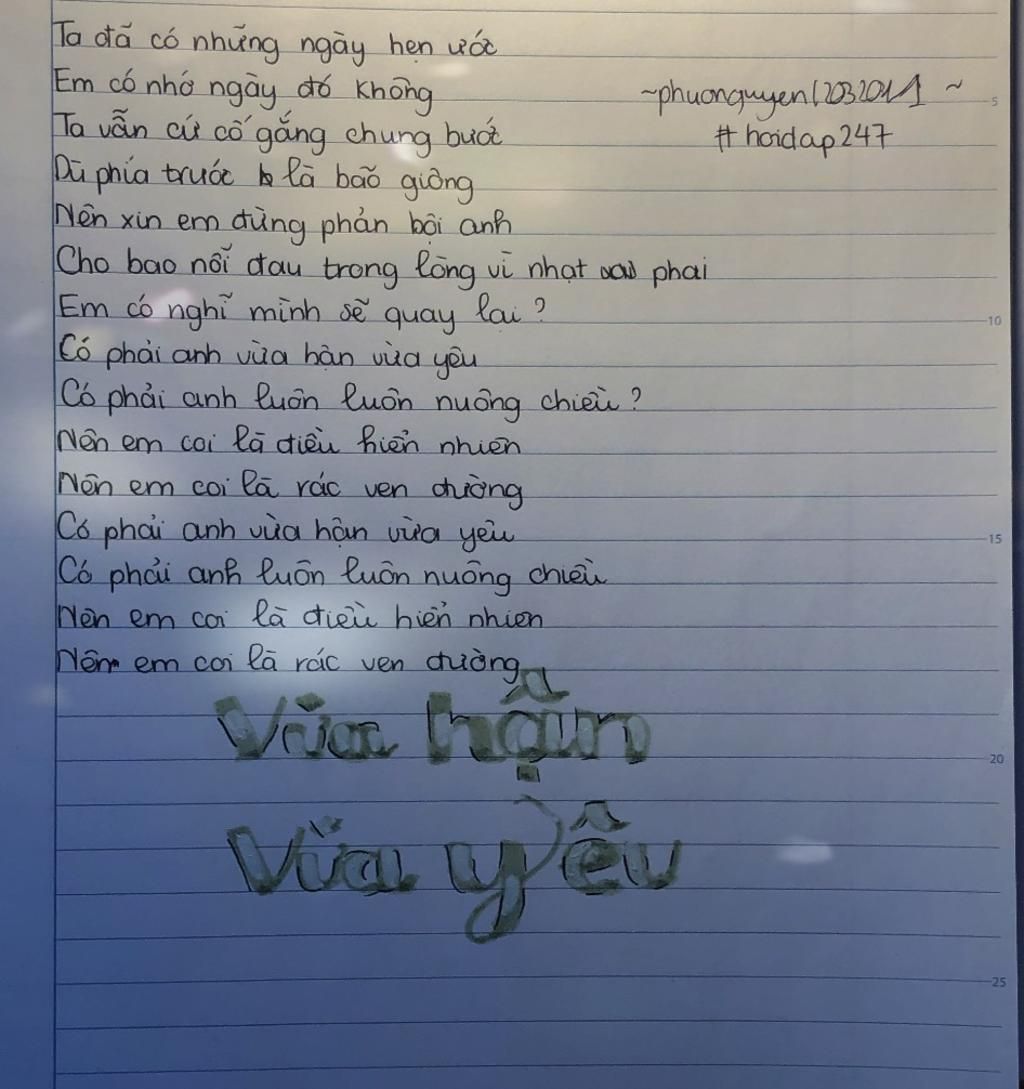 Ta đã có những ngày hẹn ước
Em có nhớ ngày đó không
~phuonguyen12032011~
Ta vẫn cứ cố gắng chung bước
#hoidap247
Dù phía trước là bão giông
Nên xin em đừng phản bội anh
Cho bao nỗi đau trong lòng vì nhạt phai
Em có nghĩ mình sẽ quay lại?
Có phải anh vừa hận vừa yêu
Có phải anh luôn luôn nuông chiều?
Nên em coi là điều hiển nhiên
Nên em coi là rác ven đường
Có phải anh vừa hận vừa yêu
Có phải anh luôn luôn nuông chiều
Nên em coi là điều hiển nhiên
Nên em coi là rác ven đường
Vừa hận
Vừa yêu
5
10
15
20
25